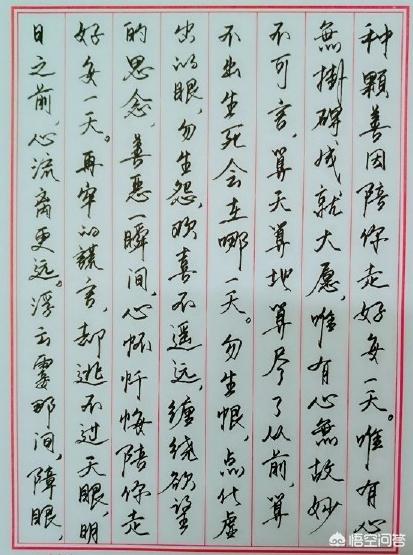 种颗善因陪你走好每一天。唯有心
無掛碍，成就大愿，唯有心無故妙
不可言，算天算地算尽了从前，算
不出生死会在哪一天。勿生恨，点化虚
空的眼，勿生怨，欢喜不遥远，缠绕欲望
的思念，善恶一瞬间，心怀忏悔陪你走
好每一天。再牢的谎言，却逃不过天眼，明
日之前，心流离更远。浮云霎那间，障眼，
悟空问答